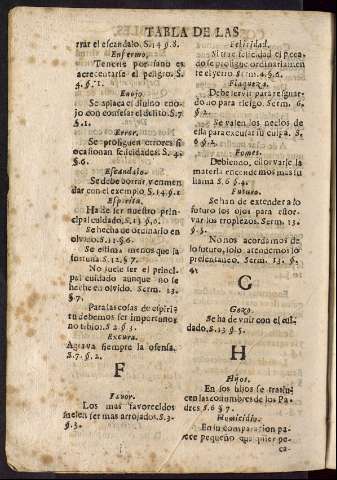 TABLA DE LAS
rrar el escandalo. S. 14 §. 8.
Enfermo.
Tenerse por sano es
acrecentarse el peligro. S.
4. §. 1.
Enojo.
Se aplaca el diuino eno-
jo con confesar el delito. S. 7
§. 1.
Error.
Se prosiguen errores si
ocasionan felicidades. S. 4.
§. 6.
Escandalo.
Se debe borrar, y enmen
dar con el exemplo. S. 14. §. 1
Espiritu.
Ha de ser nuestro prin-
cipal cuidado. S. 13 §. 6.
Se hecha de ordinario en
olvido. S. 12. §. 6.
Se estima menos que la
fortuna. S. 12. §. 7.
No suele ser el princi-
pal cuidado aunque no se
heche en olvido. Serm. 13.
§. 7.
Para las cosas de espiri-
tu debemos ser importunos
no tibios. S. 2 §. 3.
Escusa.
Agrava siempre la ofensa.
S. 7. §. 2.
F
Favor.
Los mas favorecidos
suelen ser mas arrojados. S. 3.
§. 3.
Felicidad.
Si trae felicidad el peca-
do se prosigue ordinariamen
te el yerro. Serm. 4. §. 6.
Flaqueza.
Debe servir para resguar-
do no para riesgo. Serm. 6.
§. 2.
Se valen los necios de
ella para excusar su culpa. S.
6 §. 2.
Fomes.
Debiendo, estorvarse la
materia encendemos mas su
llama S. 6 §. 4.
Futuro.
Se han de extender a lo
futuro los ojos para estor-
var los tropiezos. Serm. 13.
§. 3.
No nos acordamos de
lo futuro, solo atendemos lo
presentaneo. Serm. 13. §.
4.
G
Gozo.
Se ha de vnir con el cui-
dado. S. 13 §. 5.
H
Hijos.
En los hijos se traslu-
cen las costumbres de los Pa-
dres. S. 6 §. 7.
Homicidio.
En su comparacion pa-
rece pequeño qualquier pe-
ca-